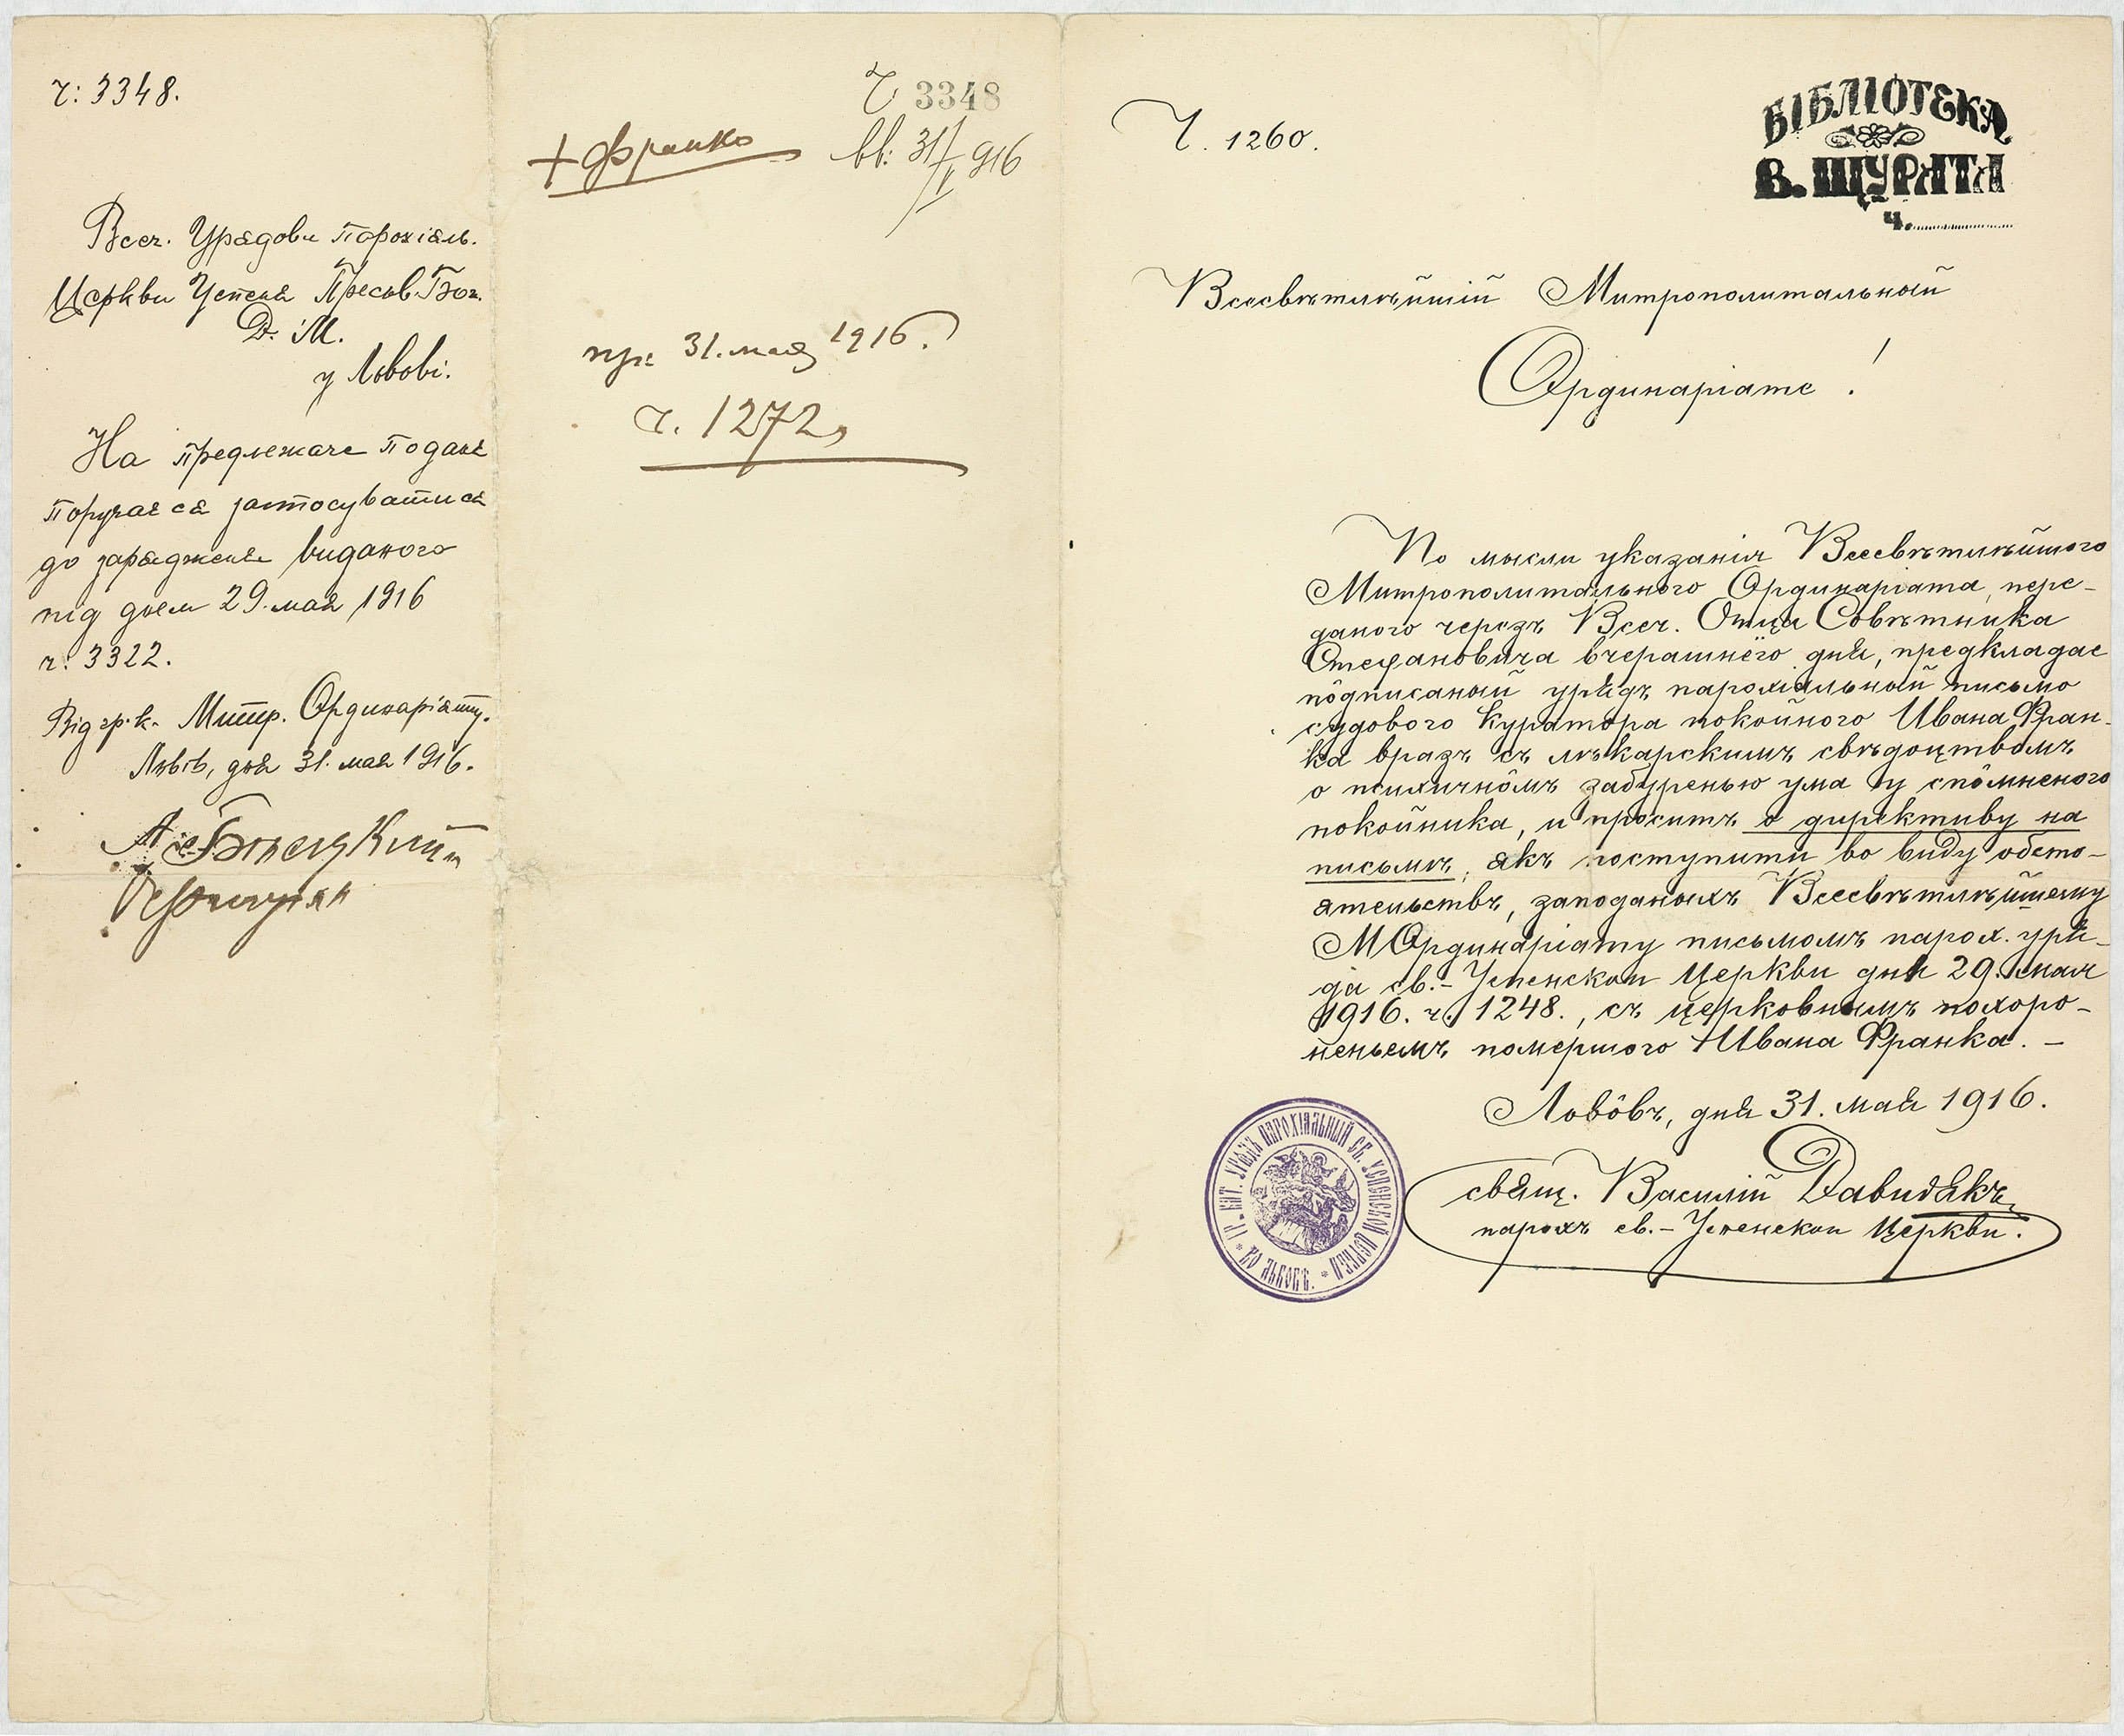 Ч: 3348.
Всеч. Урядови Парохіяль.
Церкви Успенія Пресьв. Бог.
Д. М.
у Львові.
На предлежаче поданє
поручаєся застосуватися
до зарядженя виданого
під днем 29. мая 1916
ч: 3322.
Від гр. к. Митр. Ординаріяту.
Львів, дня 31. мая 1916.
Ч. 3348
+ Франко
вв: 31/V 916
пр: 31. мая 1916.
ч. 1272,
Ч. 1260.
БІБЛІОТЕКА
В. ЩУРАТА
Ч.
Всесвѣтлѣйшій Митрополитальный
Ординаріате!
По мысли указанія Всесвѣтлѣйшого
Митрополитального Ординаріата, пере-
даного черезъ Всеч. Отца Совѣтника
Стефановича вчерашнёго дня, предкладае
пôдписаный урядъ парохіяльный письмо
судового куратора покойного Ивана Фран-
ка вразъ съ лѣкарскимъ свѣдоцтвомъ
о психичнôмъ забуренью ума у спôмненого
покойника, и проситъ о директиву на
письмѣ, якъ поступити во виду обсто-
ятельствъ, заподаныхъ Всесвѣтлѣйшему
М Ординаріяту письмомъ парох. уря-
да св.-Успенскои Церкви дня 29. мая
1916. ч. 1248., съ церковнымъ похоро-
неньемъ помершого Ивана Франка. –
Львôвъ, дня 31. мая 1916.
свящ. Василій Давидякъ
парохъ св.-Успенскои Церкви.
ГР. КАТ. УРЯДЪ ПАРОХІЯЛЬНЫЙ СВ. УСПЕНСКОЙ ЦЕРКВИ * ВО ЛЬВОВѢ. *